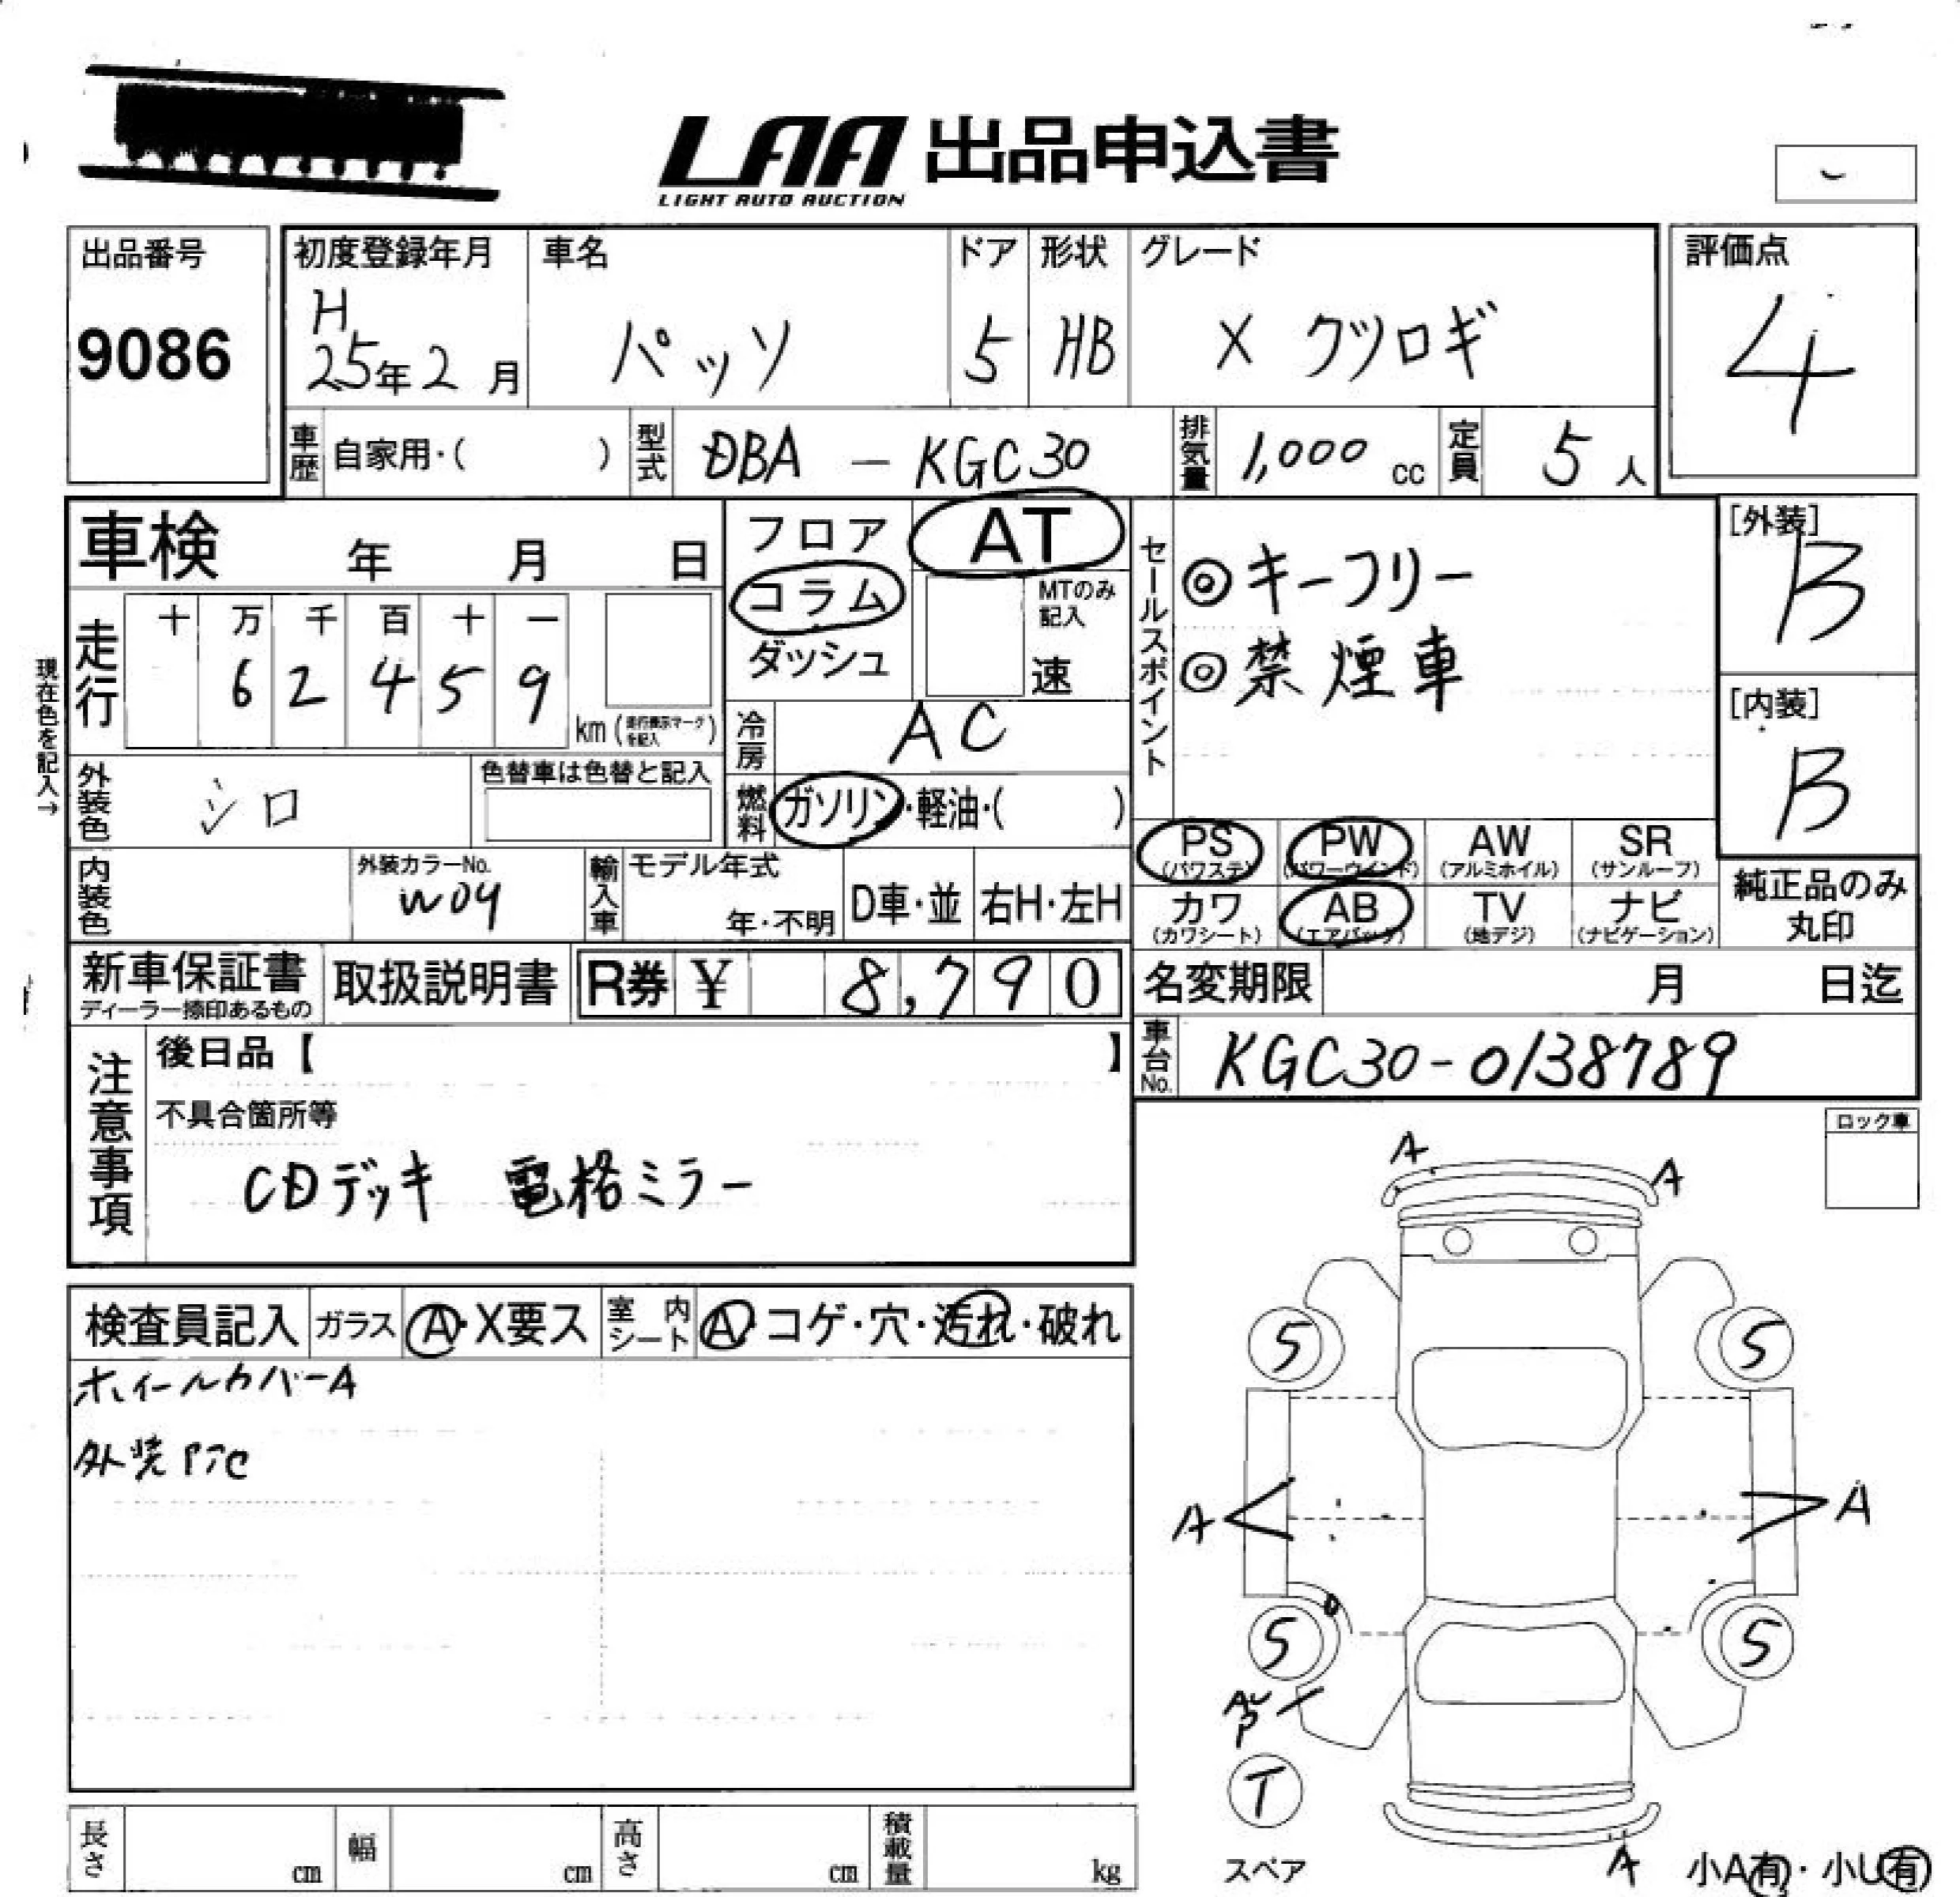 LAA 出品申込書
LIGHT AUTO AUCTION
出品番号
9086
初度登録年月
H
25年2月
車名
パッソ
ドア
5
形状
HB
グレード
X クツロギ
評価点
4
車歴
自家用・( )
型式
DBA - KGC30
排気量
1,000 cc
定員
5人
車検 年 月 日
フロア
コラム
ダッシュ
AT
MTのみ
記入
速
セールスポイント
◎キーフリー
◎禁煙車
[外装]
B
[内装]
B
現在色を記入→
走行
十 万 千 百 十 一
6 2 4 5 9
km (走行表示マークを記入)
冷房
AC
外装色
シロ
色替車は色替と記入
燃料
ガソリン・軽油・( )
PS
(パワステ)
PW
(パワーウインド)
AW
(アルミホイル)
SR
(サンルーフ)
カワ
(カワシート)
AB
(エアバック)
TV
(地デジ)
ナビ
(ナビゲーション)
純正品のみ
丸印
内装色
外装カラーNo.
W09
輸入車
モデル年式
年・不明
D車・並
右H・左H
新車保証書
ディーラー捺印あるもの
取扱説明書
R券 ¥ 8,790
名変期限 月 日迄
車台No.
KGC30-0138789
注意事項
後日品【 】
不具合箇所等
CDデッキ 電格ミラー
ロック車
検査員記入
ガラス
A・X要ス
室内
シート
A・コゲ・穴・汚れ・破れ
ホイールカバーA
A
A
S
S
A
A
S
S
T
スペア
A
小A有・小U有
長さ cm
幅 cm
高さ cm
積載量 kg